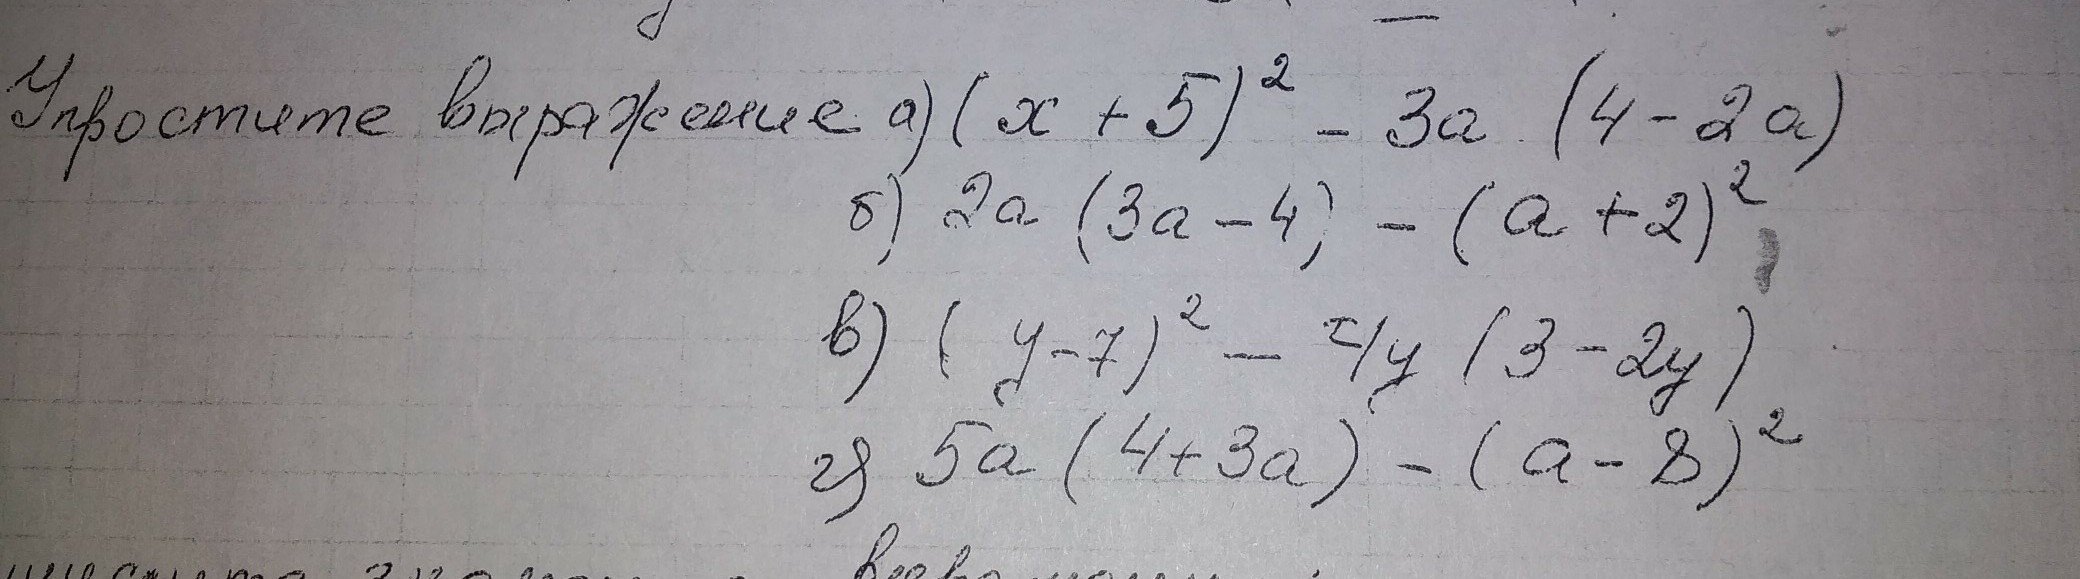 Упростите выражение а) (x + 5)² - 3a (4 - 2a)
б) 2a (3a - 4) - (a + 2)²
в) (y - 7)² - 4y (3 - 2y)
г) 5a (4 + 3a) - (a - 8)²